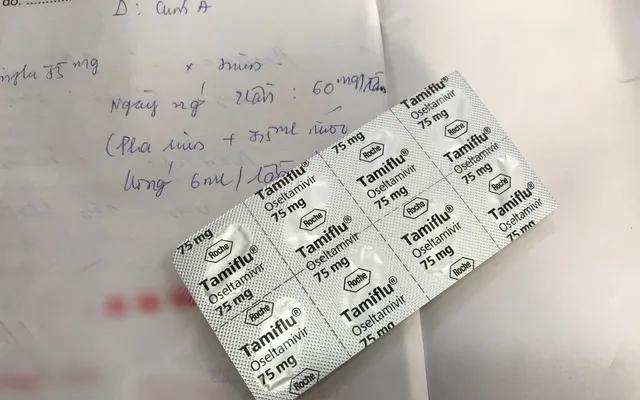 D: Cúm A
75 mg
Ngày lần : 60 mg/lần
(Pha + ml nước
Uống 6ml/lần
Tamiflu®
75 mg
Roche
Oseltamivir
75 mg
Tamiflu®
Oseltamivir
75 mg
Roche
Tamiflu®
Oseltamivir
75 mg
Roche
Tamiflu®
Oseltamivir
75 mg
75 mg
Roche
Tamiflu®
Oseltamivir
75 mg
Roche
Tamiflu®
Oseltamivir
75 mg
Roche
Tamiflu®
Oseltamivir
75 mg
Roche
Tamiflu®
Oseltamivir
75 mg
Roche
Tamiflu®
Oseltamivir
75 mg
Roche